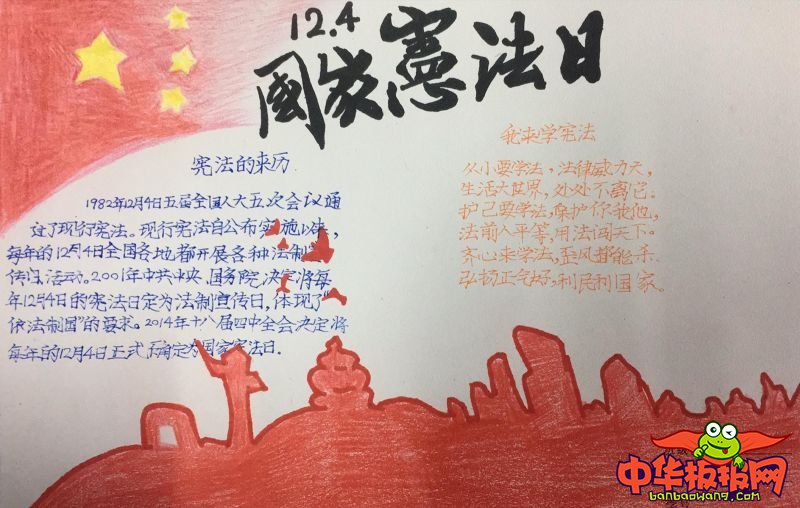 12.4
國家憲法日
宪法的来历
1982年12月4日五届全国人大五次会议通
过了现行宪法。现行宪法自公布实施以来,
每年的12月4日全国各地都开展各种法制宣
传活动。2001年中共中央、国务院决定将每
年12月4日的宪法日定为法制宣传日,体现了“
依法制国”的要求。2014年十八届四中全会决定将
每年的12月4日正式确定为国家宪法日.
我来学宪法
从小要学法,法律威力大,
生活大世界,处处不离它。
护己要学法,保护你我他,
法前人平等,用法闯天下。
齐心来学法,歪风都能杀.
弘扬正气好,利民利国家。
中华板报网
banbaowang.com